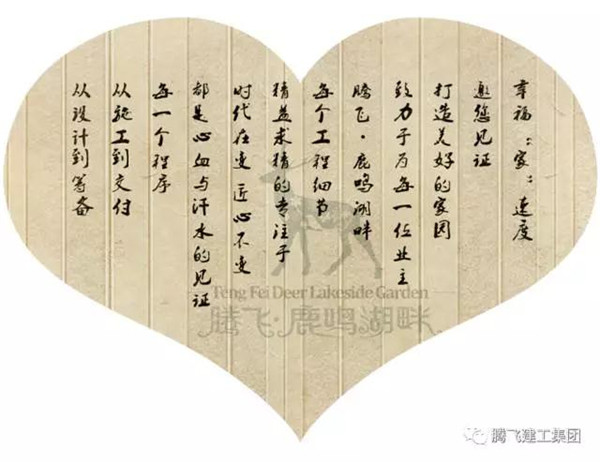 从设计到筹备
从施工到交付
每一个程序
都是心血与汗水的见证
时代在变 匠心不变
精益求精的专注于
每个工程细节
腾飞·鹿鸣湖畔
致力于为每一位业主
打造美好的家园
邀您见证
幸福“家”速度
Teng Fei Deer Lakeside Garden
腾飞·鹿鸣湖畔
腾飞建工集团